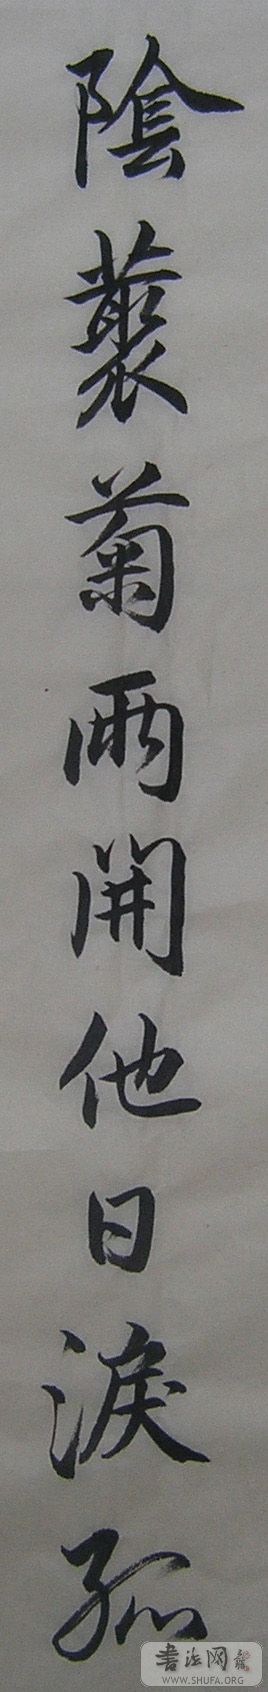 陰叢菊兩開他日淚孤
书法网
WWW.SHUFA.ORG